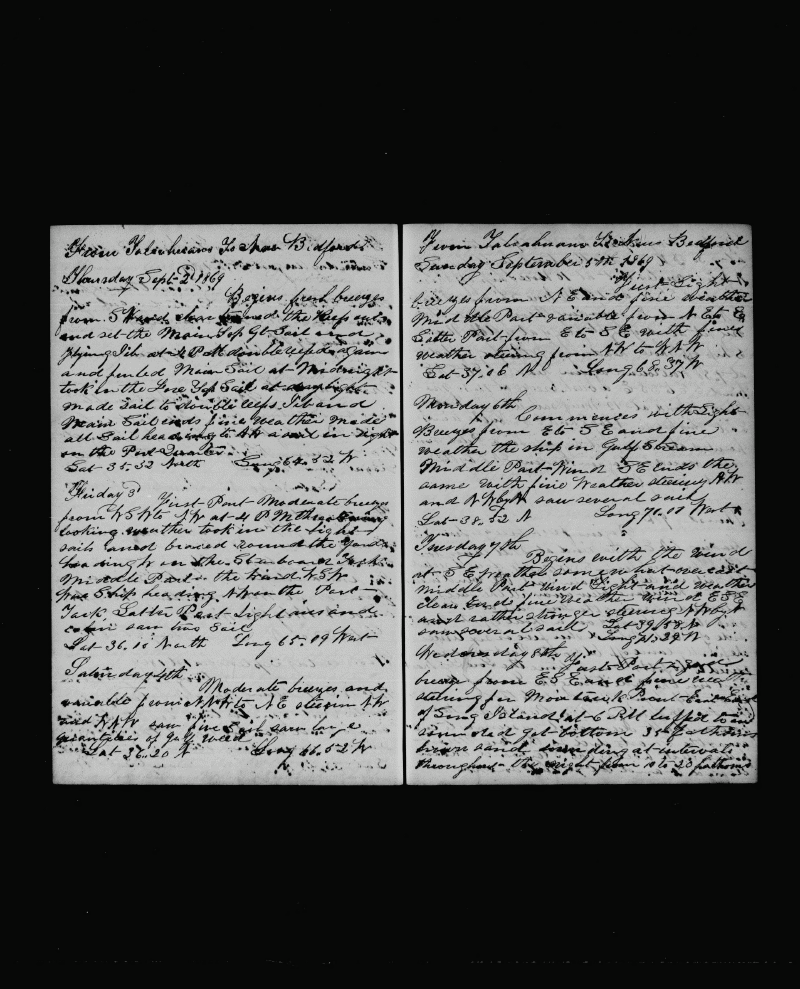 From Talcahuano To New Bedford
Thursday Sept 2d 1869
Begins fresh breezes
from S Ward the Reefs out
and set the Main Top Gt Sail and
Flying Jib at 4 P M double reefd again
and furled Main Sail at Midnight
took in the Fore Top Sail at daylight
made Sail to double reefs Jib and
Main Sail ends fine Weather made
all Sail heading to NW a sail in sight
on the Port Quarter
Lat 35.52 North Long 64.52 W
Friday 3d
First Part Moderate breezes
from WSW to NW at 4 P M
looking weather took in the light
sails and braced round the Yards
heading W on the Starboard Tack
Middle Part the Wind WSW
Ship heading NW on the Port
Tack, Latter Part Light airs and
calm saw two Sail
Lat 36.10 North Long 65.09 West
Saturday 4th
Moderate breezes and
variable from NNW to NE steering NW
and NNW saw five Sail saw large
quantities of gulf weed
Lat 36.20 N Long 66.52 W
From Talcahuano To New Bedford
Sunday September 5th 1869
First Light
breezes from NE and fine weather
Middle Part variable from N E to E
Latter Part from E to S E with fine
weather steering from NW to NNW
Lat 37.06 N Long 68.37 W
Monday 6th
Commences with Light
Breezes from E to S E and fine
weather the ship in Gulf Stream
Middle Part Wind S E Ends the
same with fine Weather steering NW
and NWbyN saw several sail
Lat 38.52 N Long 70.00 West
Tuesday 7th
Begins with the wind
at S E weather somewhat overcast
Middle Part Wind Light and weather
clear Ends fine weather wind ESE
and rather stronger steering NWbyN
saw several sail Lat 39.58 N
Long 71.39 W
Wednesday 8th
First Part
breeze from ESE and fine weather
steering for Montauk Point East End
of Long Island at 6 P M luffed to and
sounded got bottom 35 fathoms
brown sand sounding at intervals
throughout the night from 18 to 23 fathoms